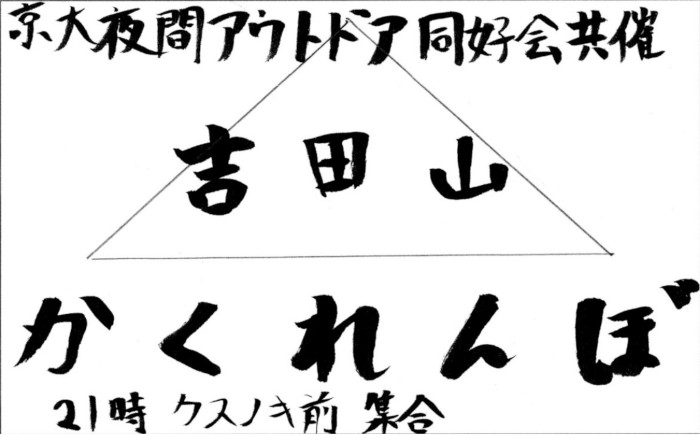 京大夜間アウトドア同好会共催
吉田山
かくれんぼ
21時 クスノキ前 集合